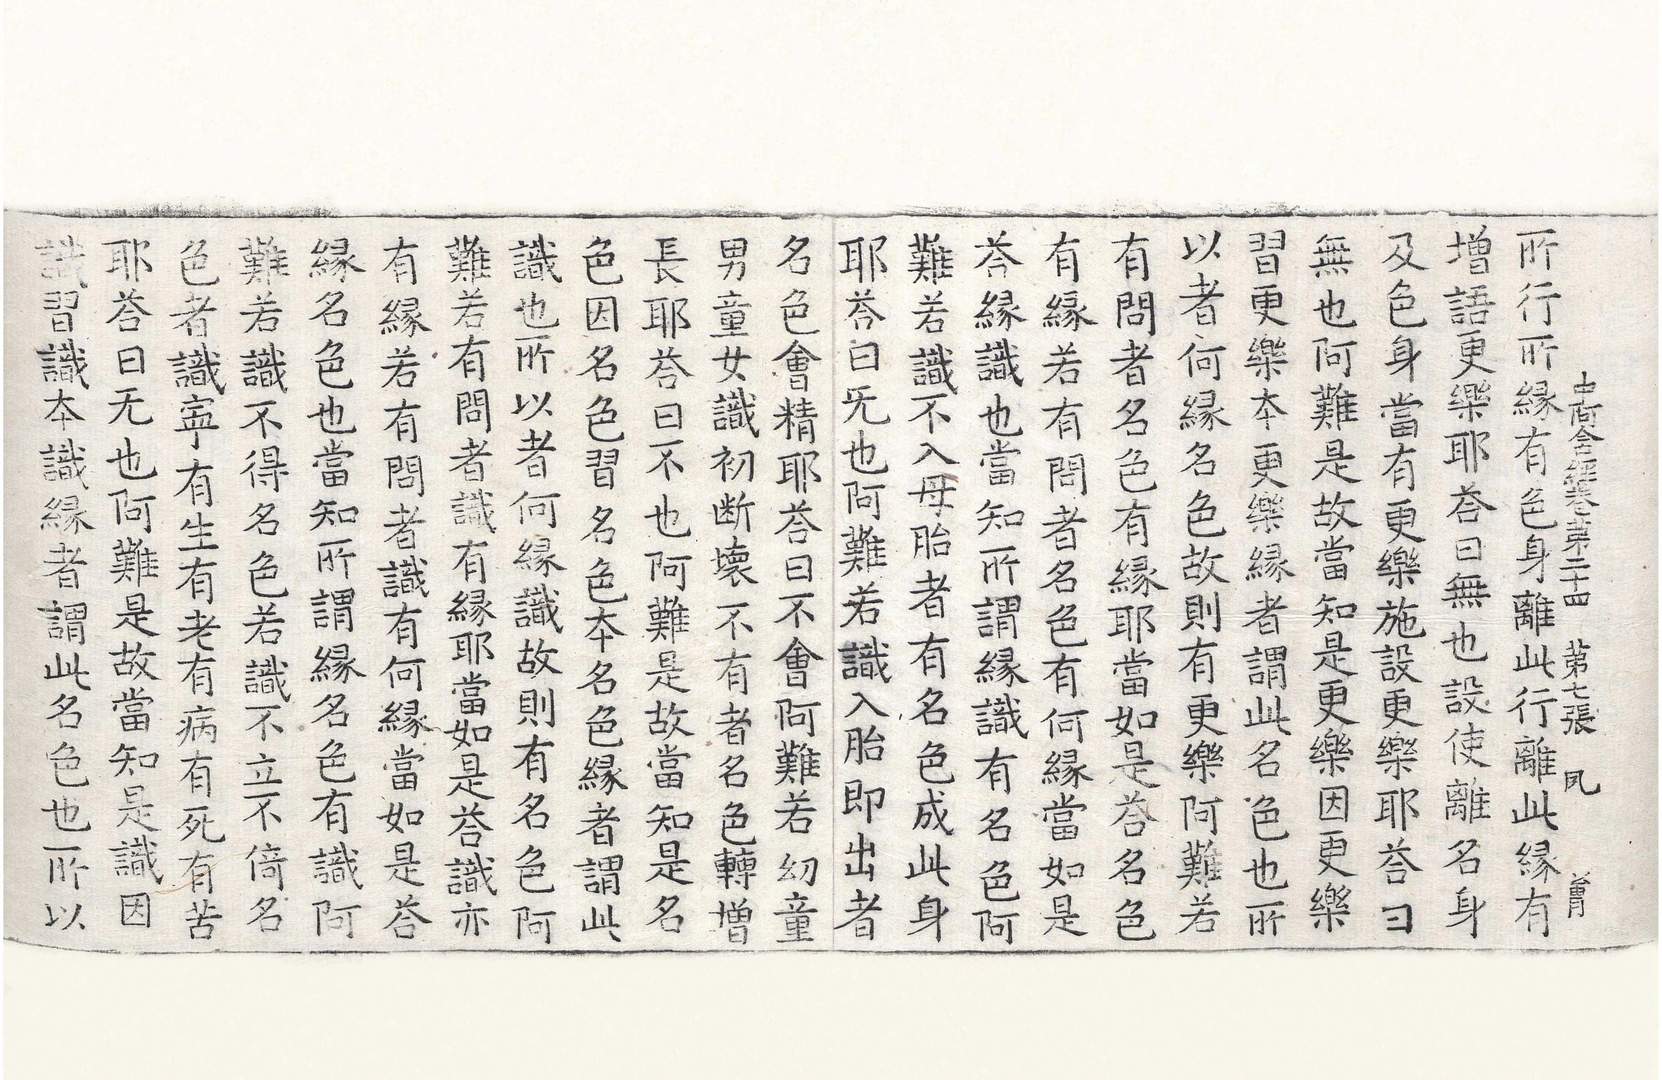 中阿含經卷第二十四　第七張　夙
所行所縁有色身離此行離此縁有
增語更樂耶荅曰無也設使離名身
及色身當有更樂施設更樂耶荅曰
無也阿難是故當知是更樂因更樂
習更樂本更樂縁者謂此名色也所
以者何縁名色故則有更樂阿難若
有問者名色有縁耶當如是荅名色
有縁若有問者名色有何縁當如是
荅縁識也當知所謂縁識有名色阿
難若識不入母胎者有名色成此身
耶荅曰无也阿難若識入胎即出者
名色會精耶荅曰不會阿難若幼童
男童女識初断壞不有者名色轉增
長耶荅曰不也阿難是故當知是名
色因名色習名色本名色縁者謂此
識也所以者何縁識故則有名色阿
難若有問者識有縁耶當如是荅識亦
有縁若有問者識有何縁當如是荅
縁名色也當知所謂縁名色有識阿
難若識不得名色若識不立不倚名
色者識寧有生有老有病有死有苦
耶荅曰无也阿難是故當知是識因
識習識本識縁者謂此名色也所以